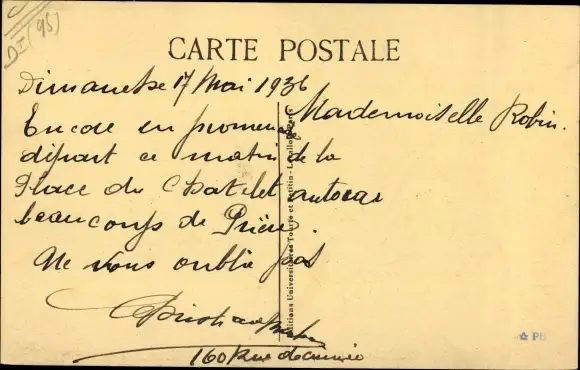 DI (95)
CARTE POSTALE
Dimanche 17 Mai 1936
Mademoiselle Robin.
Encore en promenade
départ ce matin de la
Place du Chatelet autocar
beaucoup de Prière.
Ne vous oublie pas
160 Rue de
Editions Universitaires Tourte et Petitin - Levallois
PB